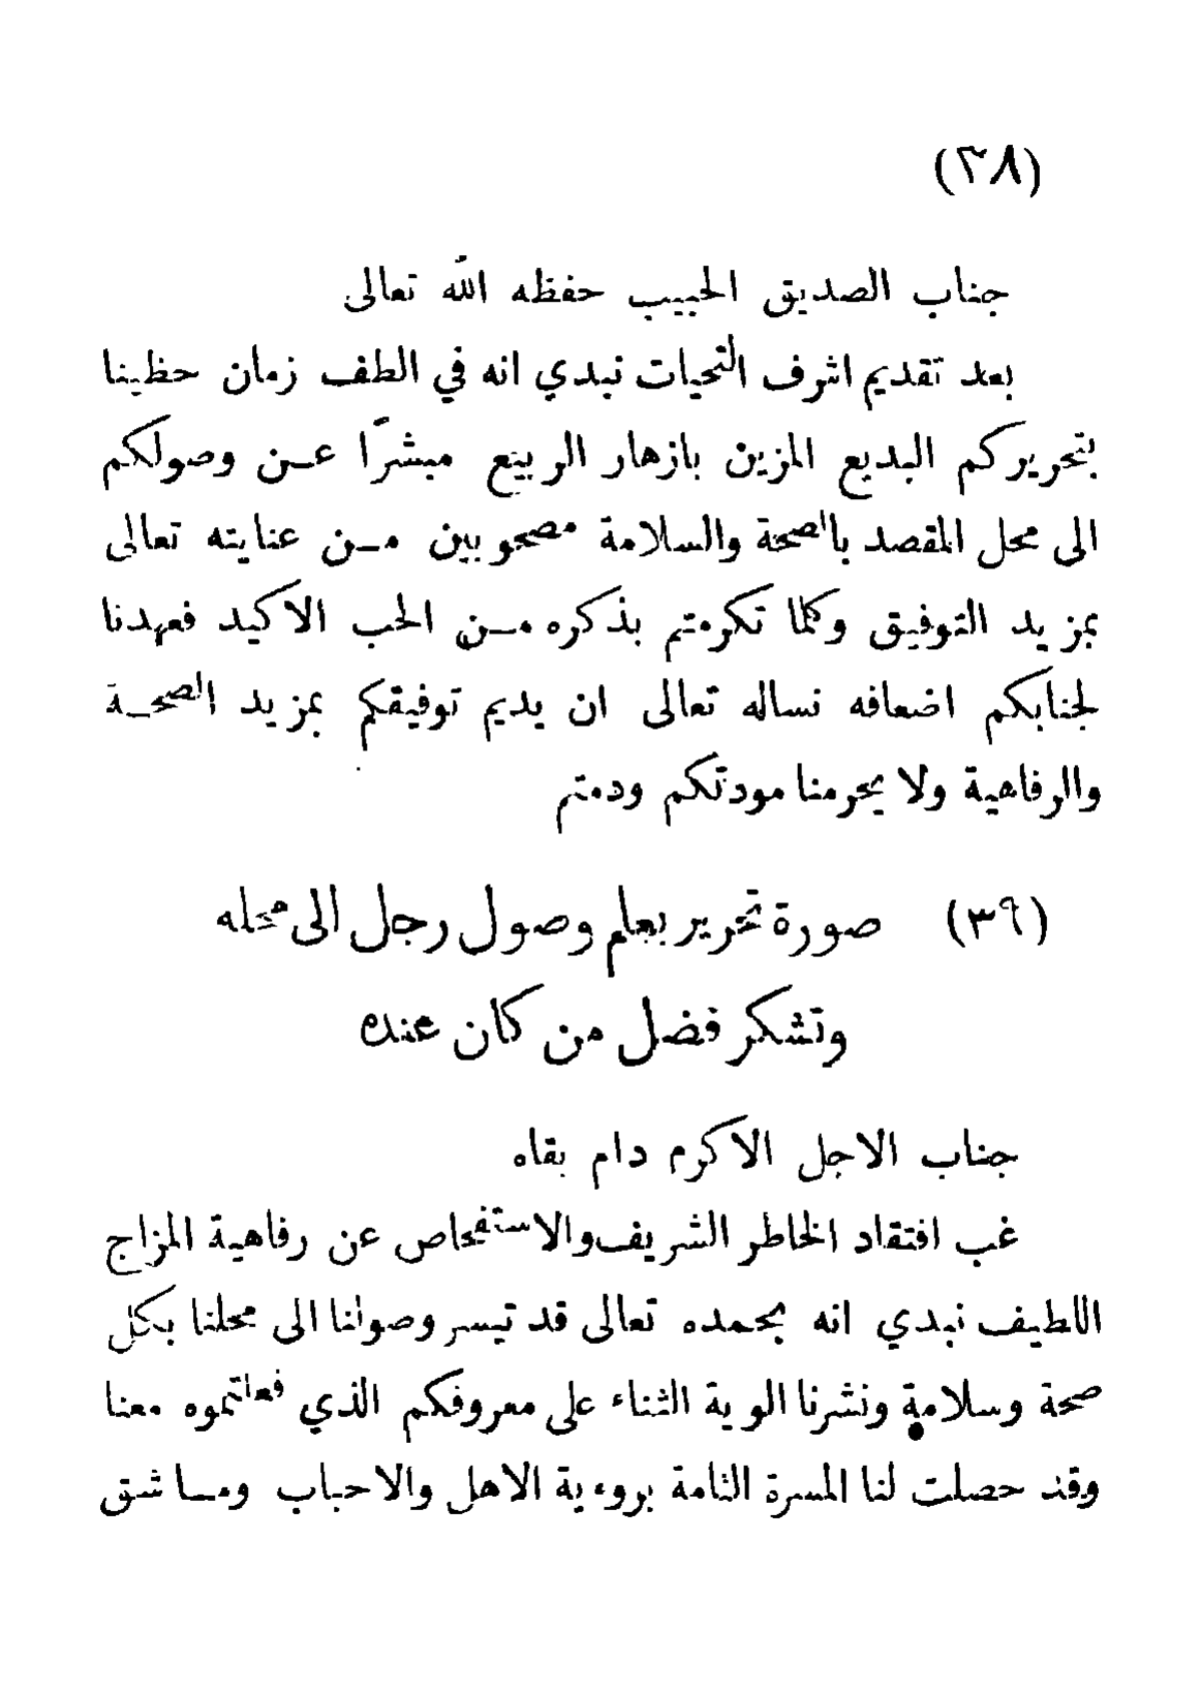 (٣٨)
جناب الصديق الحبيب حفظه الله تعالى
بعد تقديم اشرف التحيات نبدي انه في الطف زمان حظينا
بتحريركم البديع المزين بازهار الربيع مبشرًا عن وصولكم
الى محل المقصد بالصحة والسلامة مصحوبين من عنايته تعالى
بمزيد التوفيق وكلما تكرمتم بذكره من الحب الاكيد فعهدنا
لجنابكم اضعافه نساله تعالى ان يديم توفيقكم بمزيد الصحة
والرفاهية ولا يحرمنا مودتكم ودمتم
(٣٩) صورة تحرير بعلم وصول رجل الى محله
وتشكر فضل من كان عنده
جناب الاجل الاكرم دام بقاه
غب افتقاد الخاطر الشريف والاستفحاص عن رفاهية المزاج
اللطيف نبدي انه بحمده تعالى قد تيسر وصولنا الى محلنا بكل
صحة وسلامة ونشرنا الوية الثناء على معروفكم الذي فعلتموه معنا
وقد حصلت لنا المسرة التامة بروءية الاهل والاحباب وما شق